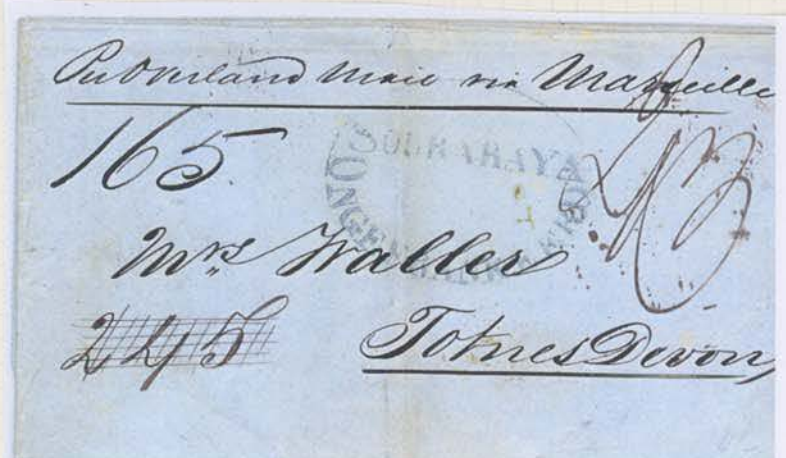 Per Overland Mail via Marseille
165
SOURABAYA
ONGEFRANKEERD
Mrs Waller
245
Totnes Devon,